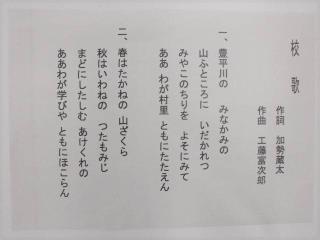 校　歌
作詞　加勢蔵太
作曲　工藤富次郎
一、豊平川の　みなかみの
山ふところに　いだかれつ
みやこのちりを　よそにみて
ああ わが村里 ともにたたえん
二、春はたかねの　山ざくら
秋はいわねの　つたもみじ
まどにしたしむ　あけくれの
ああわが学びや ともにほこらん